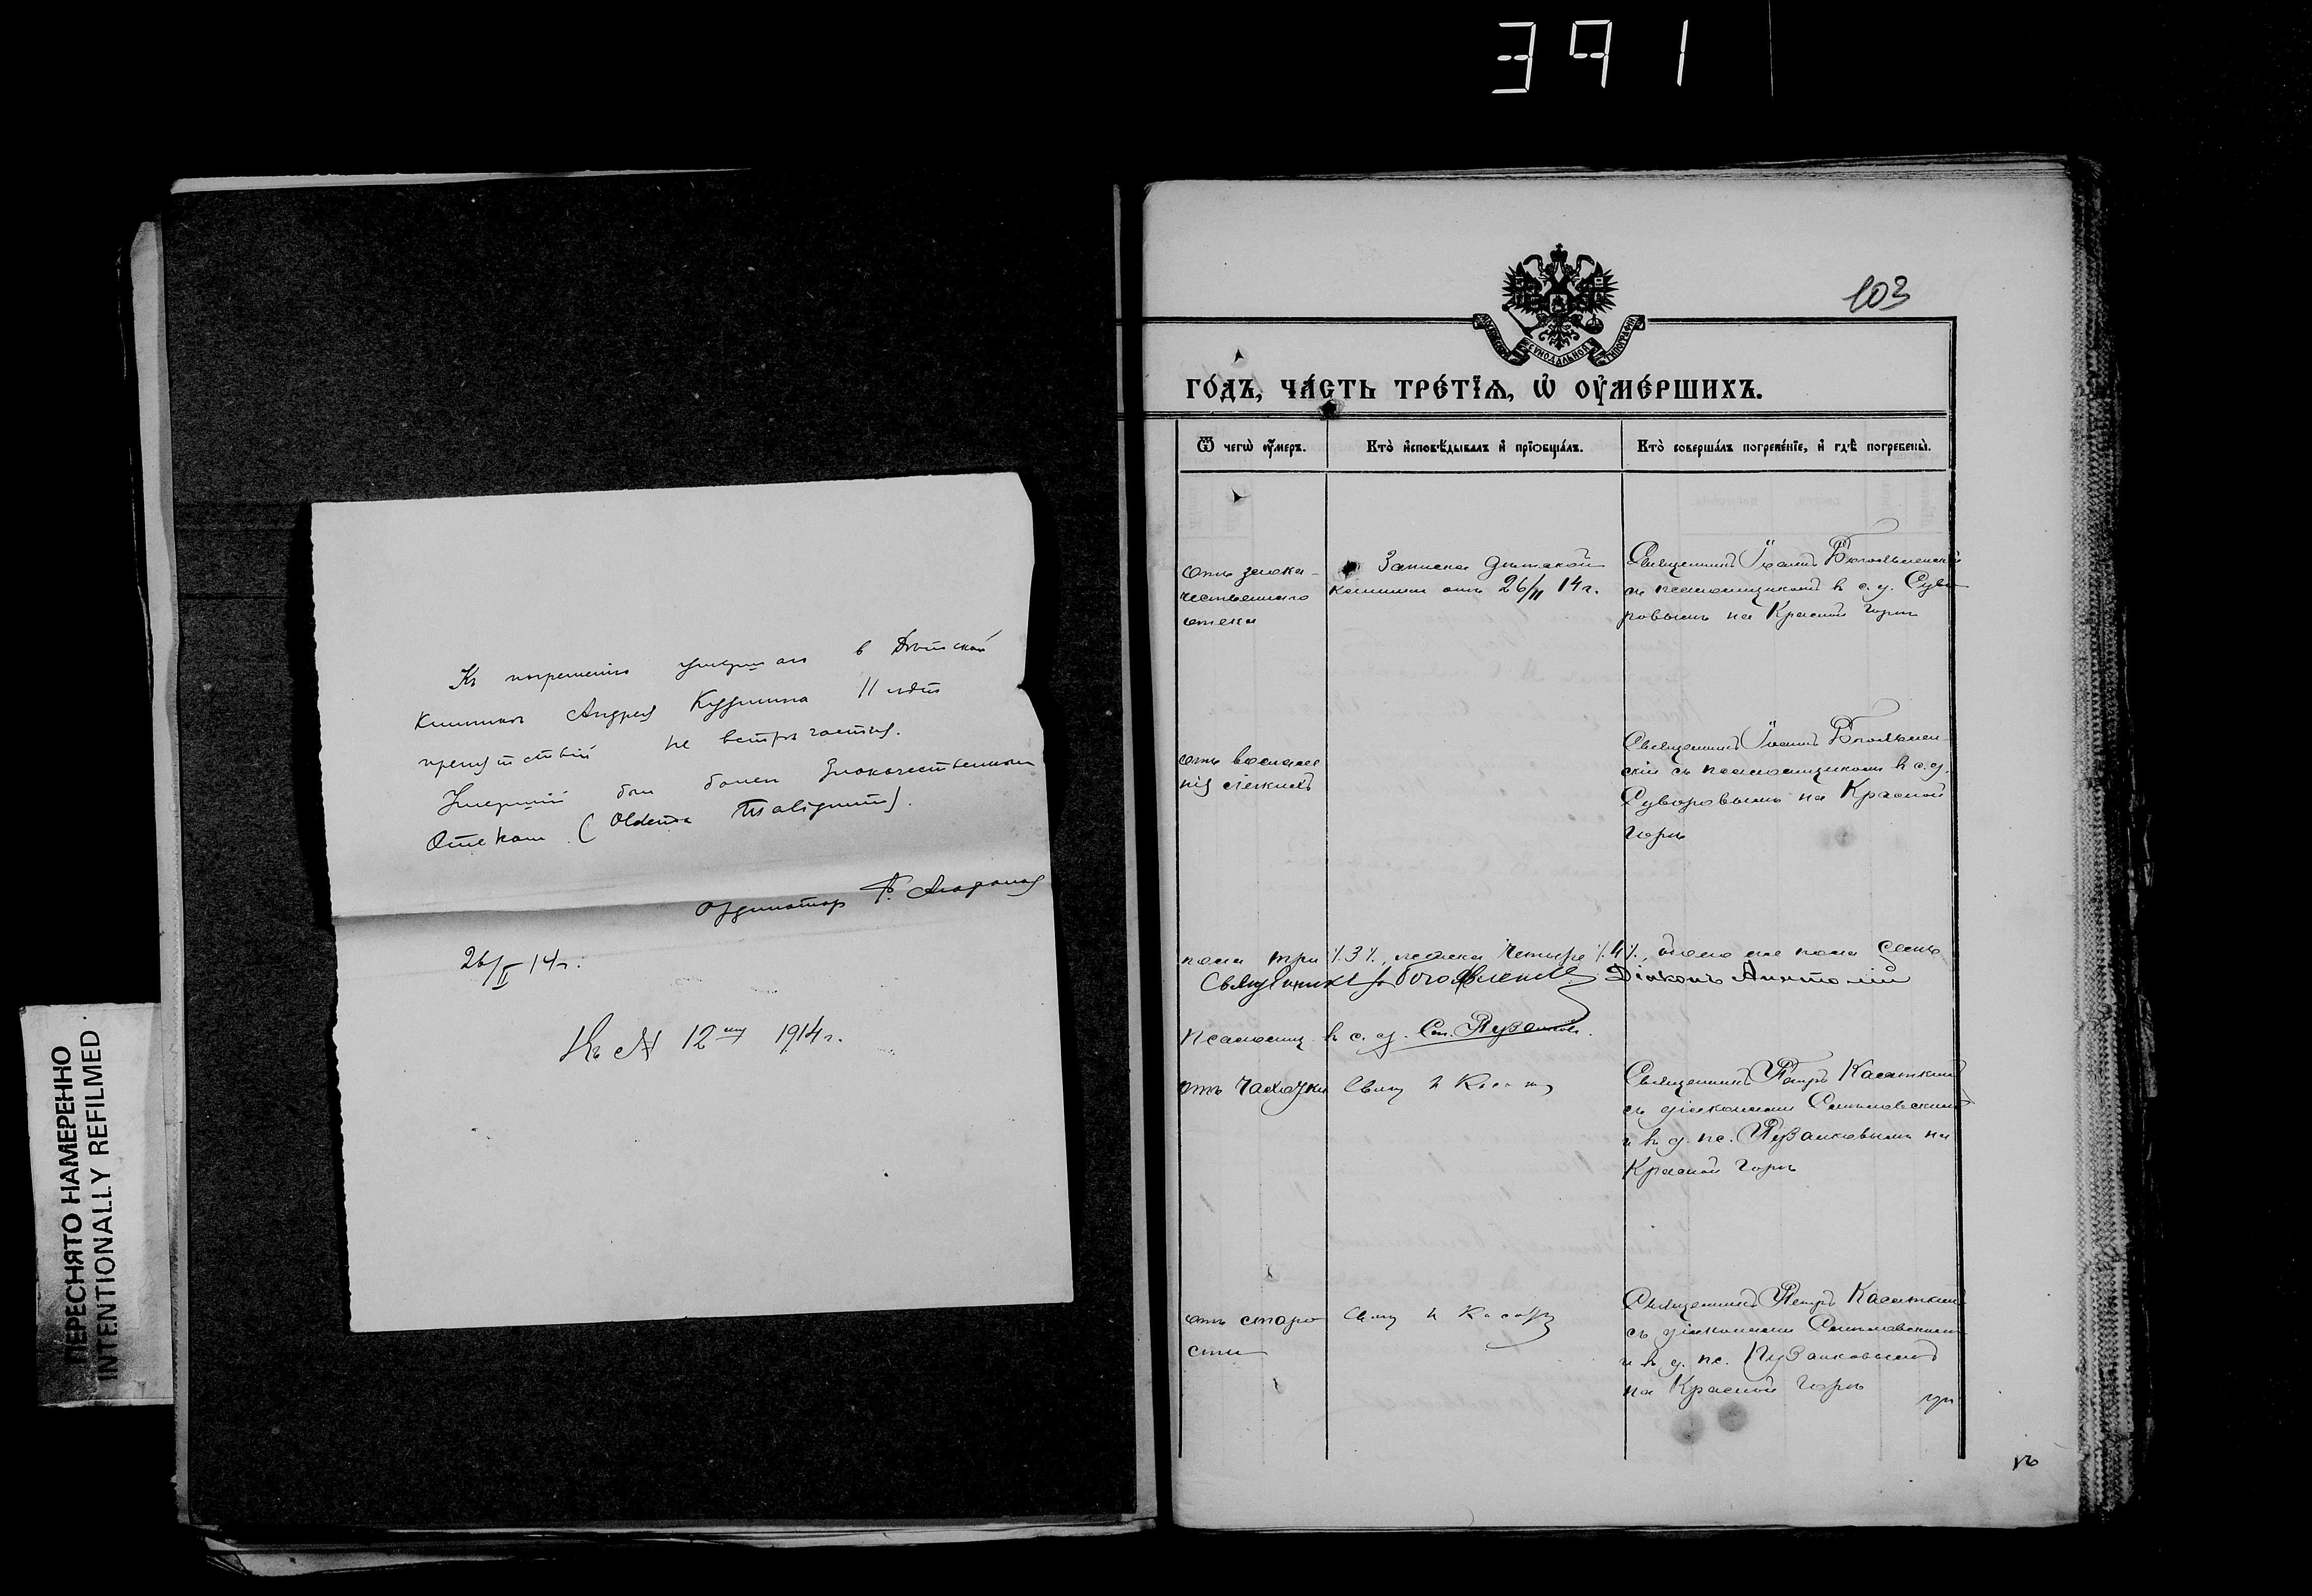 391
ПЕРЕСНЯТО НАМЕРЕННО
INTENTIONALLY REFILMED
Къ погребенію умершаго в Дѣтской
клиникѣ Андрея Кузьмина 11 лѣтъ
препятствій не встрѣчается.
Умершій был болен Злокачественным
Отеком (Oldema malignum).
Ординатор
26/II 14г.
Къ № 12му 1914г.
103
СѴНОДАЛЬНОЙ ТИПОГРАФІИ
ГО́ДЪ, ЧА́СТЬ ТРЕ́ТЇѦ, Ѡ҆ ОУ҆МЕ́РШИХЪ.
Ѿ чегѡ̀ оу҆́меръ.
Кто̀ и҆сповѣ́дывалъ и҆ прїѡбща́лъ.
Кто̀ соверша́лъ погребе́нїе, и҆ гдѣ̀ погребены̀.
отъ злока-
чественнаго
отека
Записка дѣтской
клиники отъ 26/II 14г.
Священникъ Іоаннъ Богоявленскій
съ псаломщикомъ в. с. д. Суво
ровымъ на Красной горкѣ
отъ воспале
нія легкихъ
Священникъ Іоаннъ Богоявлен
скій съ псаломщикомъ в с. д.
Суворовымъ на Красной
горкѣ
пола три /.3/., женска четыре /.4/., обоего же пола семь
Священникъ І. Богоявленскій Діаконъ Анатолій
Псаломщ. в с. д. Ст. Пузанковъ.
отъ чахотки
Свящ П Касатк
Священникъ Петръ Касаткинъ
съ діакономъ
и в. д. пс. Пузанковымъ на
Красной горкѣ
отъ старо
сти
Свящ П Касатк
Священникъ Петръ Касаткинъ
съ діакономъ
и в. д. пс. Пузанковымъ
на Красной горкѣ